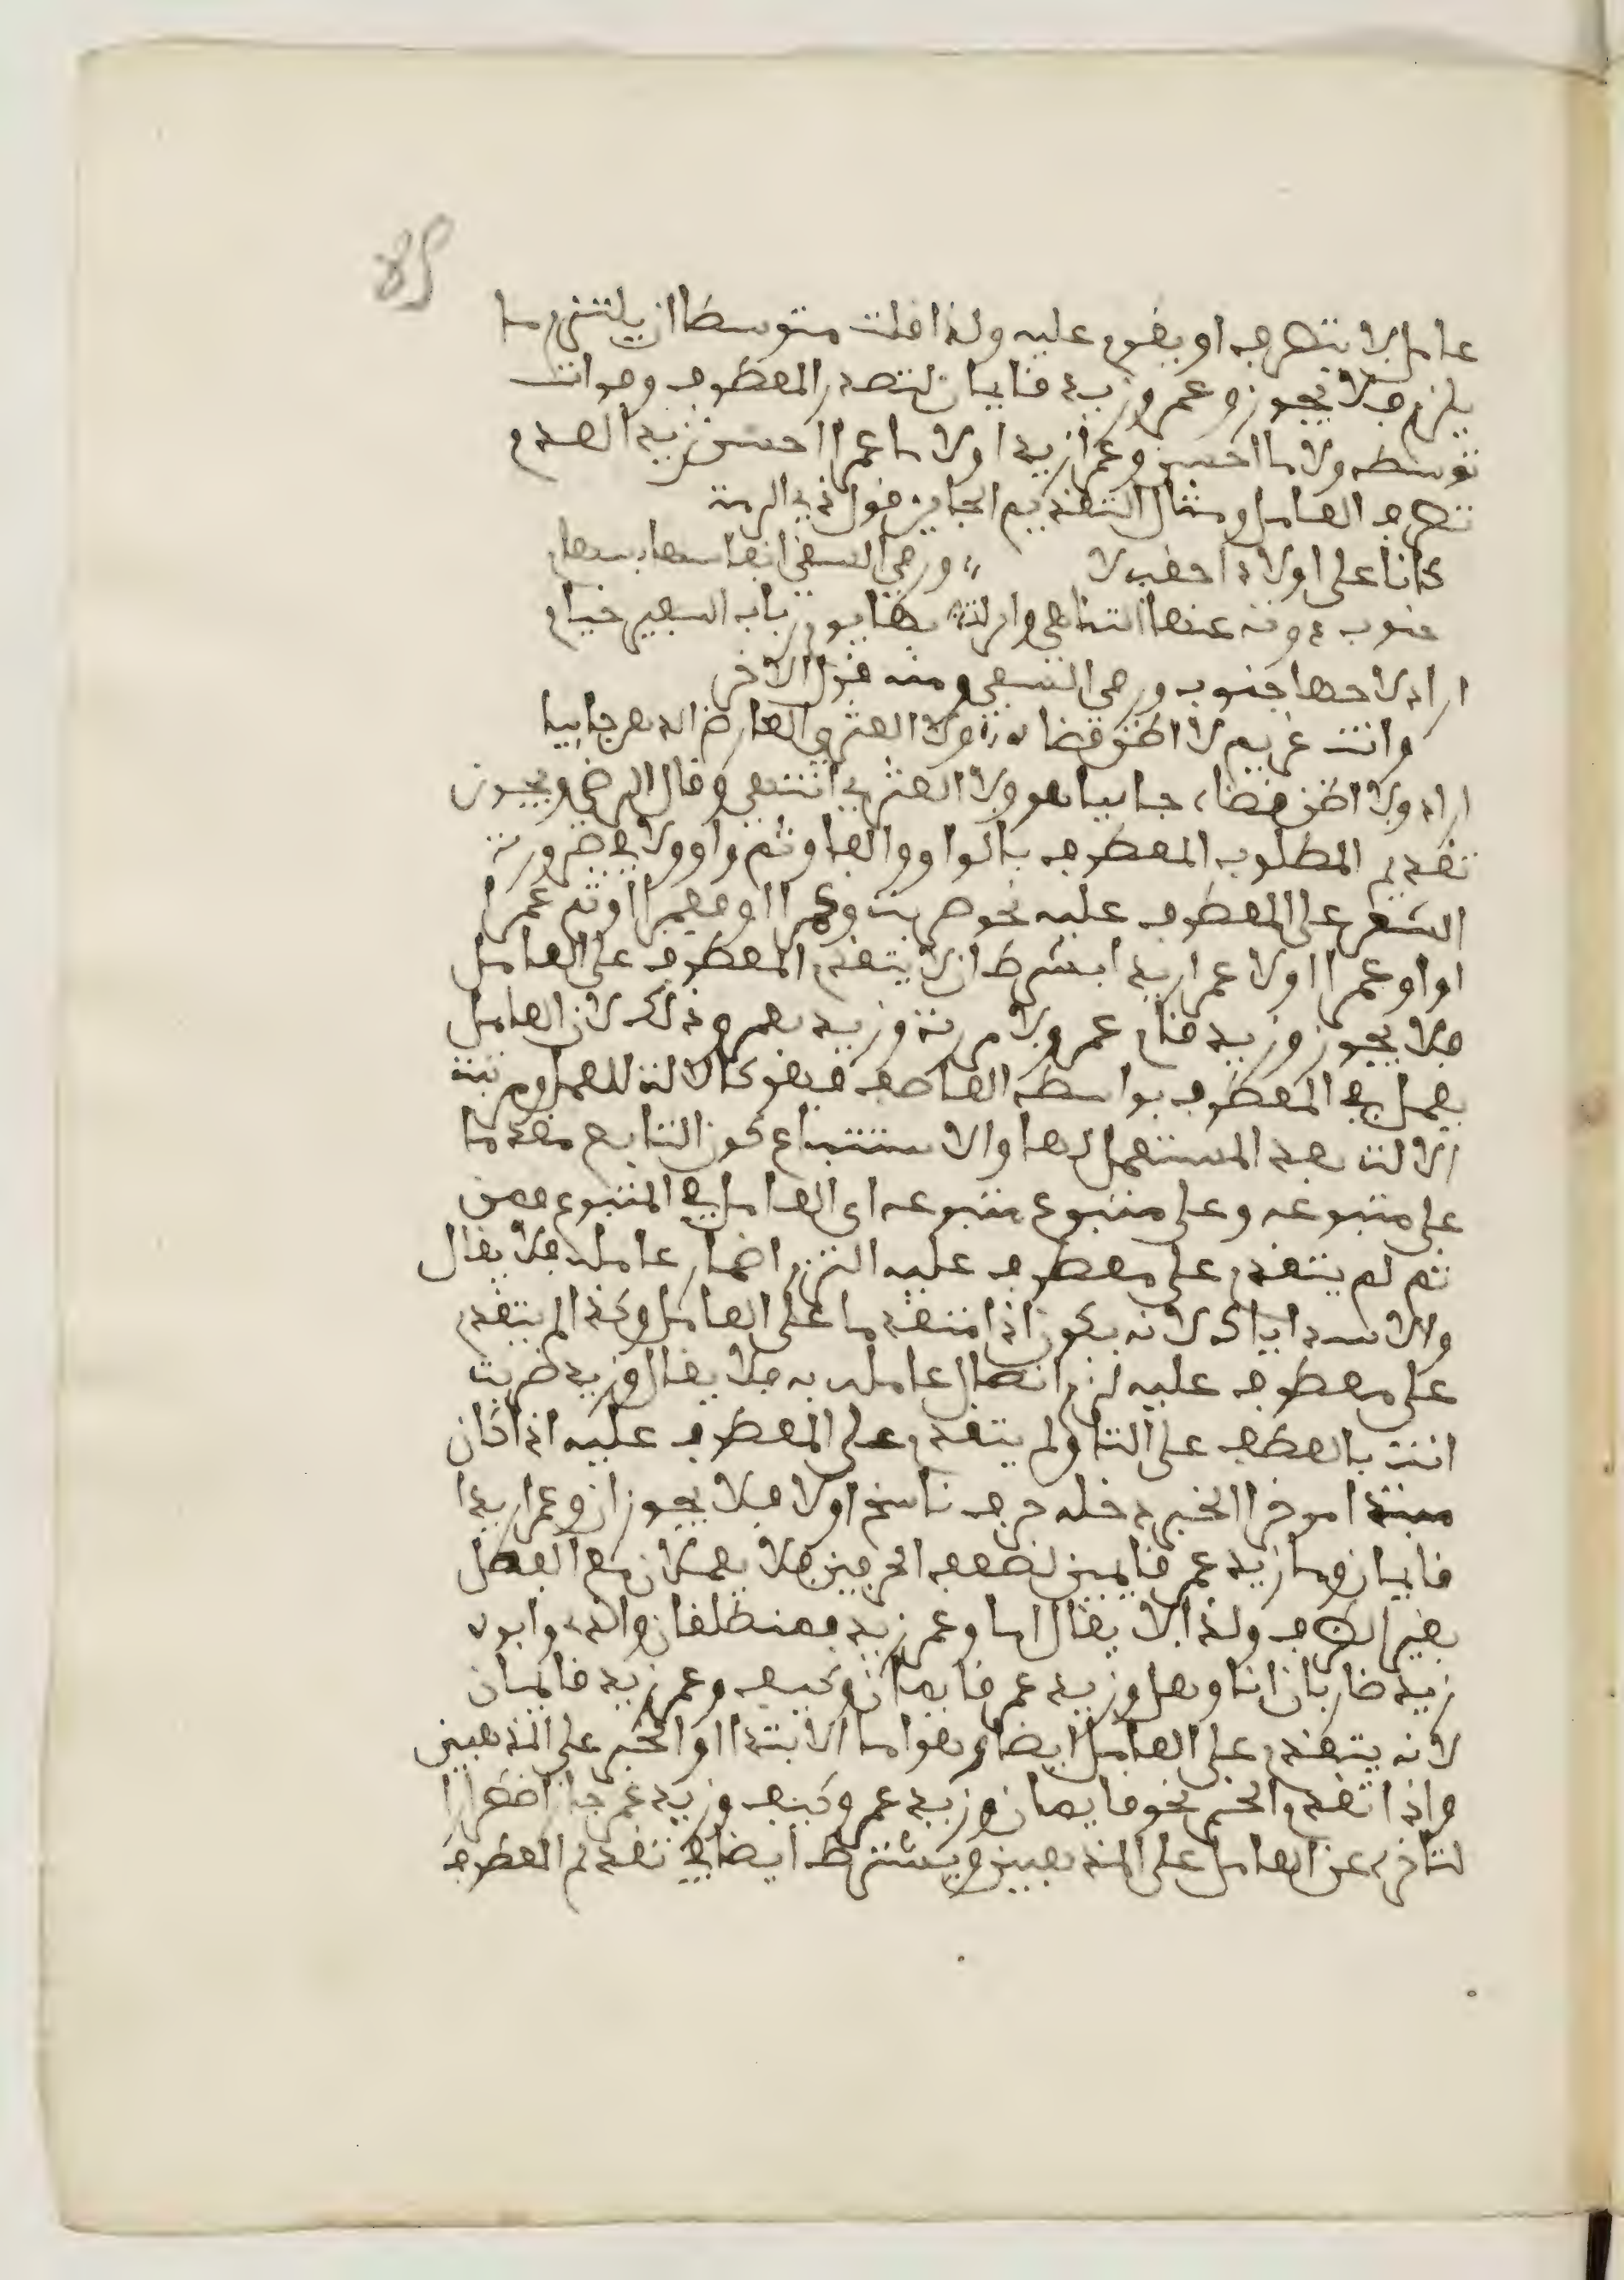 عاملا لا يتصرف او يقوى عليه ولذا قلت متوسطا ان يلتزم ما
يلزم فلا يجوز وعمرو زيد قايمان لتصدر المعطوف وفوات
توسطه ولا ما احسن وعمرا زيدا ولا ما عمرا احسن زيدا لعدم
تصرف العامل ومثال التقديم الجايز قول ذي الرمة
كانا على اولاد احقب لا ورمي السفى انفاسها بسهام
جنوب ذوت عنها التناهي وانزلت بها يوم ذباب السبيب صيام
اراد لاحها جنوب ورمي السفى ومنه قول الاخر
وانت غريم لا اظن قضاه ولا العنزي القارظ الدهر جاييا
اراد ولا اظن قضاه جاييا هو ولا العنزي انتهى وقال الرضي ويجوز
تقديم المطلوب المعطوف بالواو والفا وثم واو ولا في ضرورة
الشعر على المعطوف عليه نحو ضربت وعمرا او فعمرا او ثم عمرا
او او عمرا او ولا عمرا زيدا بشرط ان لا يتقدم المعطوف على العامل
فلا يجوز وزيد قام عمرو ولا مررت وزيد بعمرو وذلك لان العامل
يعمل في المعطوف بواسطة العاطف فهو كالالة للعمل ومرتبة
الالة بعد المستعمل لها والاستتباع كون التابع مقدما
على متبوعه وعلى متبوع متبوعه اى العامل في المتبوع فمن
ثم لم يتقدم على معطوف عليه التزم اضمار عامله فلا يقال
والاسد اياك لانه يكون اذا متقدما على العامل وكذا لم يتقدم
على معطوف عليه لزم اتصال عامله به فلا يقال وزيد ضربت
انت بالعطف على التا ولم يتقدم على المعطوف عليه اذا كان
مبتدا موخرا الخبر دخله حرف ناسخ اولا فلا يجوز ان وعمرا زيدا
قايمان وما زيد عمرو قايمين لضعف الحرفين فلا يعملان مع الفصل
بغير الظرف ولذا لا يقال اما وعمرو زيد فمنطلقان والله وابوه
زيد ضاربان انا وهل وزيد عمرو قايمان وكيف وعمرو زيد قايمان
لانه يتقدم على العامل ايضا وهو اما الابتدا او الخبر على المذهبين
واذا تقدم الخبر نحو قايمان وزيد عمرو وكيف وزيد عمرو جاز اضطرارا
لتاخره عن العامل على المذهبين ويشترط ايضا في تقديم المعطوف